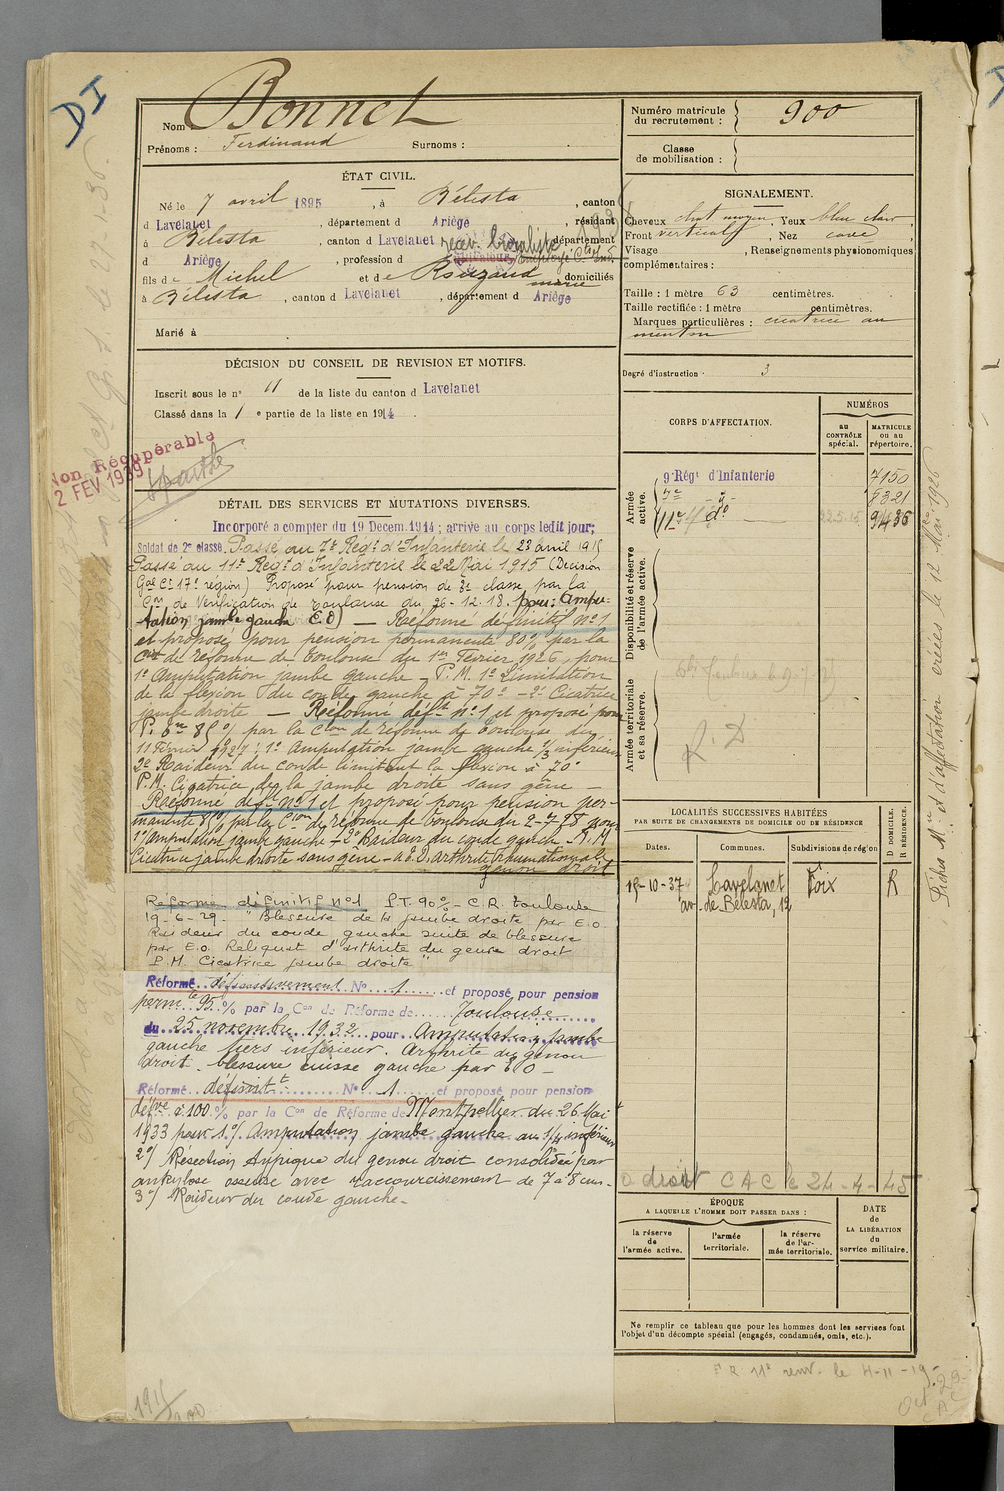 DI
Nom Bonnet
Prénoms : Ferdinand Surnoms :
ÉTAT CIVIL.
Né le 7 avril 1895, à Bélesta, canton
d Lavelanet, département d Ariège, résidant
à Bélesta, canton d Lavelanet, département
d Ariège, profession d
fils de Michel et de Rouzaud marie, domiciliés
à Bélesta, canton d Lavelanet, département d Ariège
Marié à
DÉCISION DU CONSEIL DE REVISION ET MOTIFS.
Inscrit sous le n° 11 de la liste du canton d Lavelanet
Classé dans la 1e partie de la liste en 1914.
Non Récupérable
2 FEV 1939
DÉTAIL DES SERVICES ET MUTATIONS DIVERSES.
Incorporé a compter du 19 Decem. 1914; arrivé au corps ledit jour;
Soldat de 2e classe. Passé au 7e Régt d'Infanterie le 23 avril 1915
Passé au 11e Régt d'Infanterie le 22 Mai 1915 (Décision
Gal Ct 17e région) Proposé pour pension de 3e classe par la
Con de Vérification de Toulouse du 26-12-18. pour: Ampu-
tation jambe gauche E.O) — Réformé définitif n°1
et proposé pour pension permanente 80% par la
Con de réforme de Toulouse du 1er Février 1926, pour
1° amputation jambe gauche - P.M. 1° Limitation
de la flexion du coude gauche à 70° - 2° Cicatrice
jambe droite — Réformé déft n°1 et proposé pour
P. Pnte 85% par la Cion de réforme de Toulouse du
11 Février 1927: 1° amputation jambe gauche 1/3 inférieur
2° Raideur du coude limitant la flexion à 70°
P.M. Cicatrice de la jambe droite sans gêne -
Réformé déft n°1 et proposé pour pension per-
manente 85% par la Cion de réforme de Toulouse du 2-7-28 pour
1° amputation jambe gauche - 2° Raideur du coude gauche - P.M.
Cicatrice jambe droite sans gêne - arthrite traumatique
genou droit
Réforme définitif N°1 P.T. 90% - C.R. Toulouse
19-6-29. "Blessure de la jambe droite par E.O.
Raideur du coude gauche suite de blessure
par E.O. Reliquat d'arthrite du genou droit
P.M. Cicatrice jambe droite"
Réformé définitivement N° 1 et proposé pour pension
permte 95% par la Con de Réforme de Toulouse
du 25 novembre 1932 pour Amputation jambe
gauche tiers inférieur. Arthrite du genou
droit. blessure cuisse gauche par E O -
Réformé définitt N° 1 et proposé pour pension
défve à 100% par la Con de Réforme de Montpellier du 26 Mai
1933 pour 1°/ Amputation jambe gauche au 1/4 inférieur
2°/ Résection atypique du genou droit consolidée par
ankylose osseuse avec raccourcissement de 7 à 8 cm -
3°/ Raideur du coude gauche -
Numéro matricule du recrutement : 900
Classe de mobilisation :
SIGNALEMENT.
Cheveux chat moyen, Yeux bleu clair,
Front vertical, Nez cave
Visage , Renseignements physionomiques
complémentaires :
Taille : 1 mètre 63 centimètres.
Taille rectifiée : 1 mètre centimètres.
Marques particulières : cicatrice au
menton
Degré d'instruction : 3
CORPS D'AFFECTATION.
NUMÉROS
au CONTRÔLE spécial.
MATRICULE ou au répertoire.
Armée active.
9e Régt d'Infanterie 7150
7e - do - 8321
11e do 9436
Disponibilité et réserve de l'armée active.
Armée territoriale et sa réserve.
R. D
Fiches Mle et d'affectation créées le 12 Mai 1926
LOCALITÉS SUCCESSIVES HABITÉES
PAR SUITE DE CHANGEMENTS DE DOMICILE OU DE RÉSIDENCE
Dates. Communes. Subdivisions de région D DOMICILE. R RÉSIDENCE.
19-10-37 Lavelanet Foix R
av. de Bélesta, 12
a droit CAC le 24-4-45
ÉPOQUE
A LAQUELLE L'HOMME DOIT PASSER DANS :
la réserve de l'armée active.
l'armée territoriale.
la réserve de l'armée territoriale.
DATE de LA LIBÉRATION du service militaire.
Ne remplir ce tableau que pour les hommes dont les services font
l'objet d'un décompte spécial (engagés, condamnés, omis, etc.).